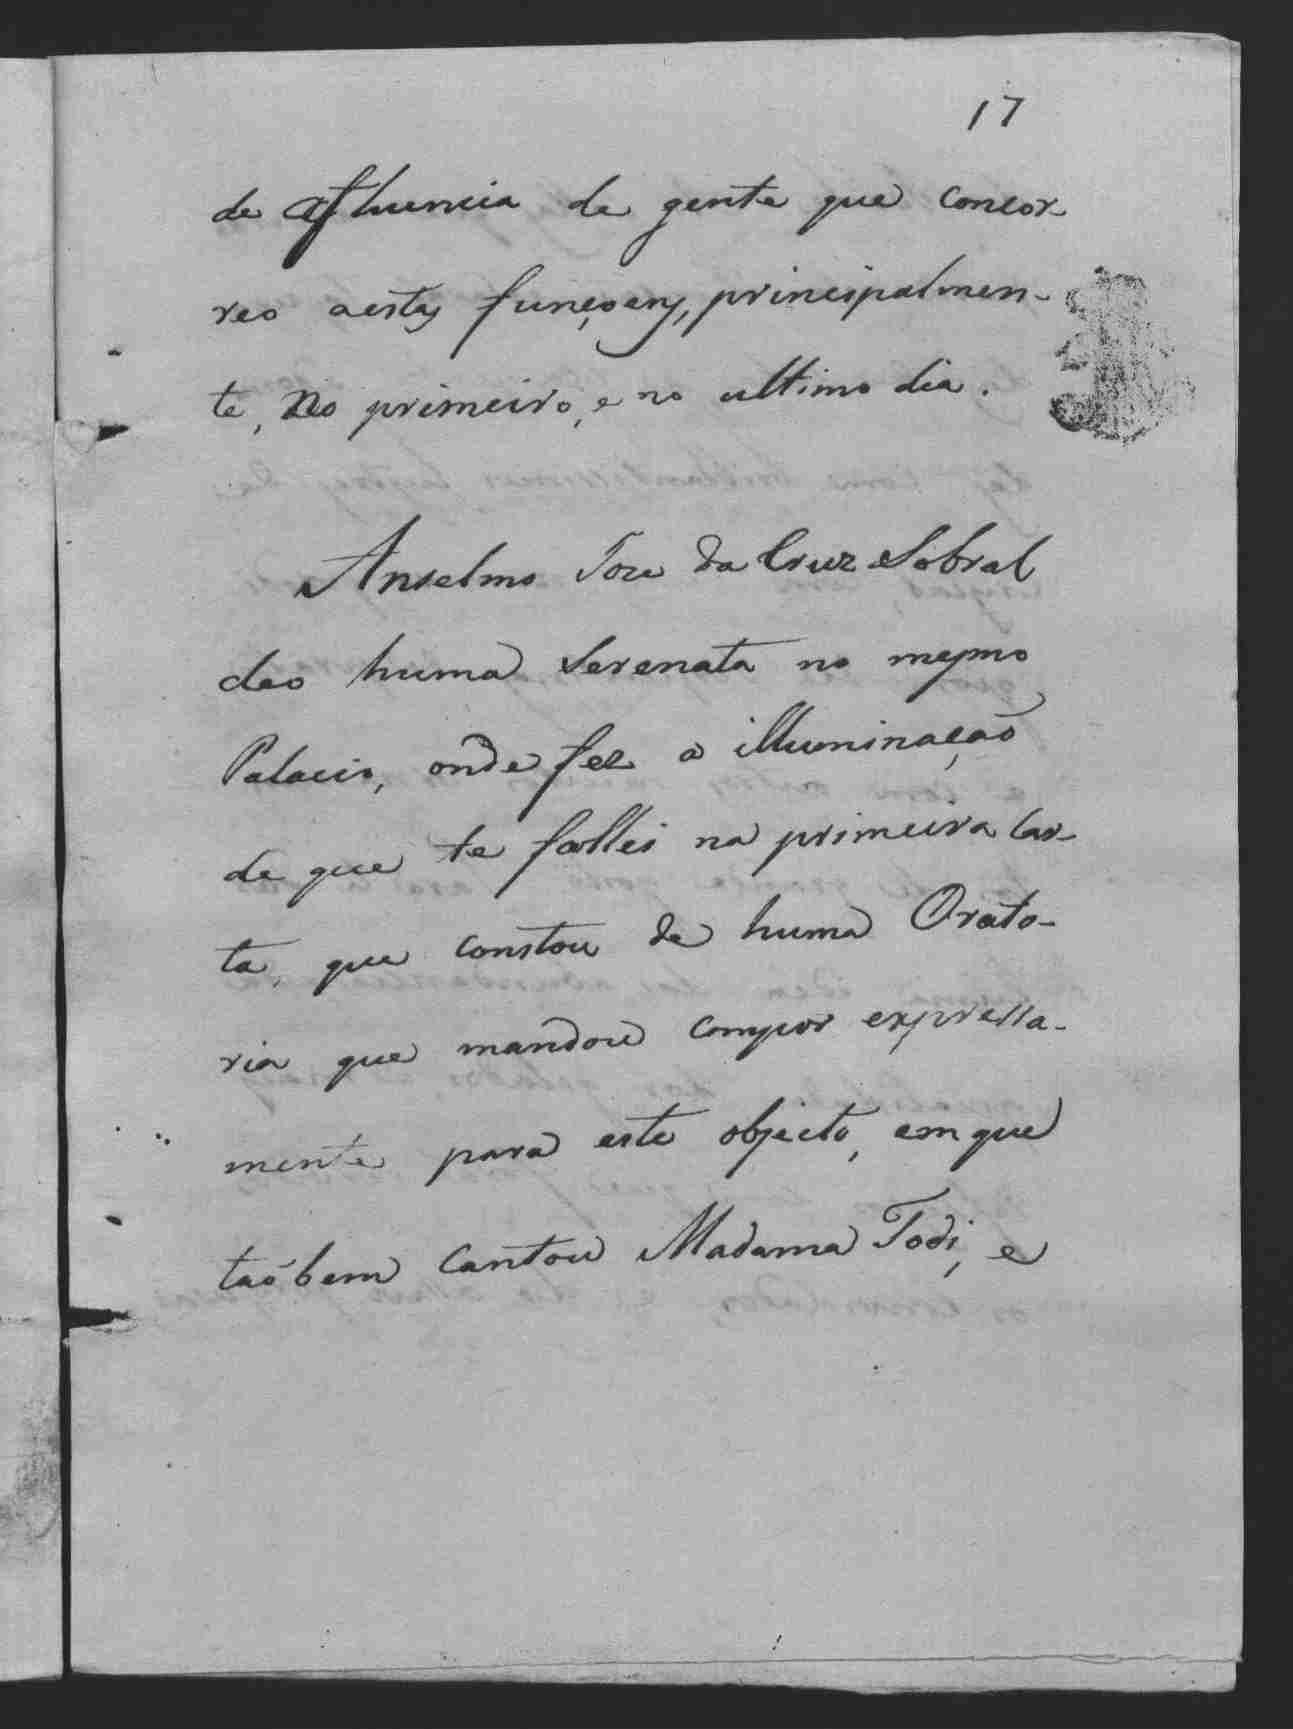 17
de affluencia de gente que concor-
reo aestas funçoens, principalmen-
te, no primeiro, e no ultimo dia.
Anselmo Joze da Cruz Sobral
deo huma Serenata no mesmo
Palacio, onde fez a illuminação
de que te fallei na primeira Car-
ta, que constou de huma Orato-
ria que mandou compor expressa-
mente para este objecto, em que
taōbem Cantou Madama Todi, e